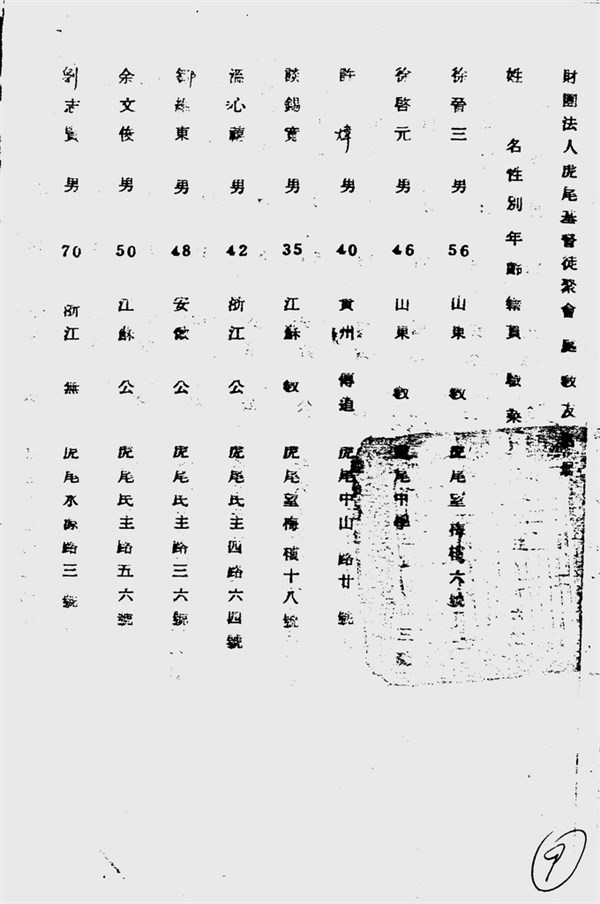 財團法人虎尾基督徒聚會
姓名性別年齡籍貫職業
徐晉三 男 56 山東 教 虎尾望梅樓六號
徐啓元 男 46 山東 教 虎尾中學
許 男 40 貴州 傳道 虎尾中山路廿號
談錫寬 男 35 江蘇 教 虎尾望梅樓十八號
沁 男 42 浙江 公 虎尾民主四路六四號
東 男 48 安徽 公 虎尾民主路三六號
余文俊 男 50 江蘇 公 虎尾民主路五六號
劉志 男 70 浙江 無 虎尾水源路三號
9